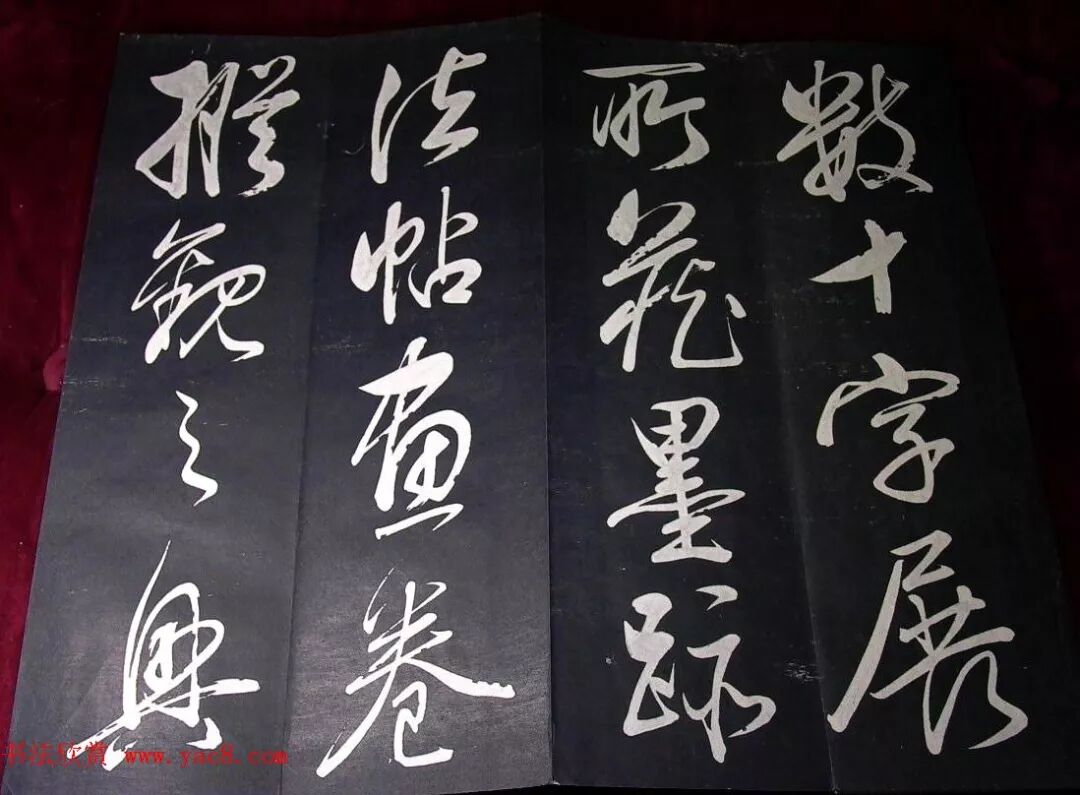 數十字展
所藏墨跡
法帖畫卷
縱觀之興
书法欣赏 www.yac8.com